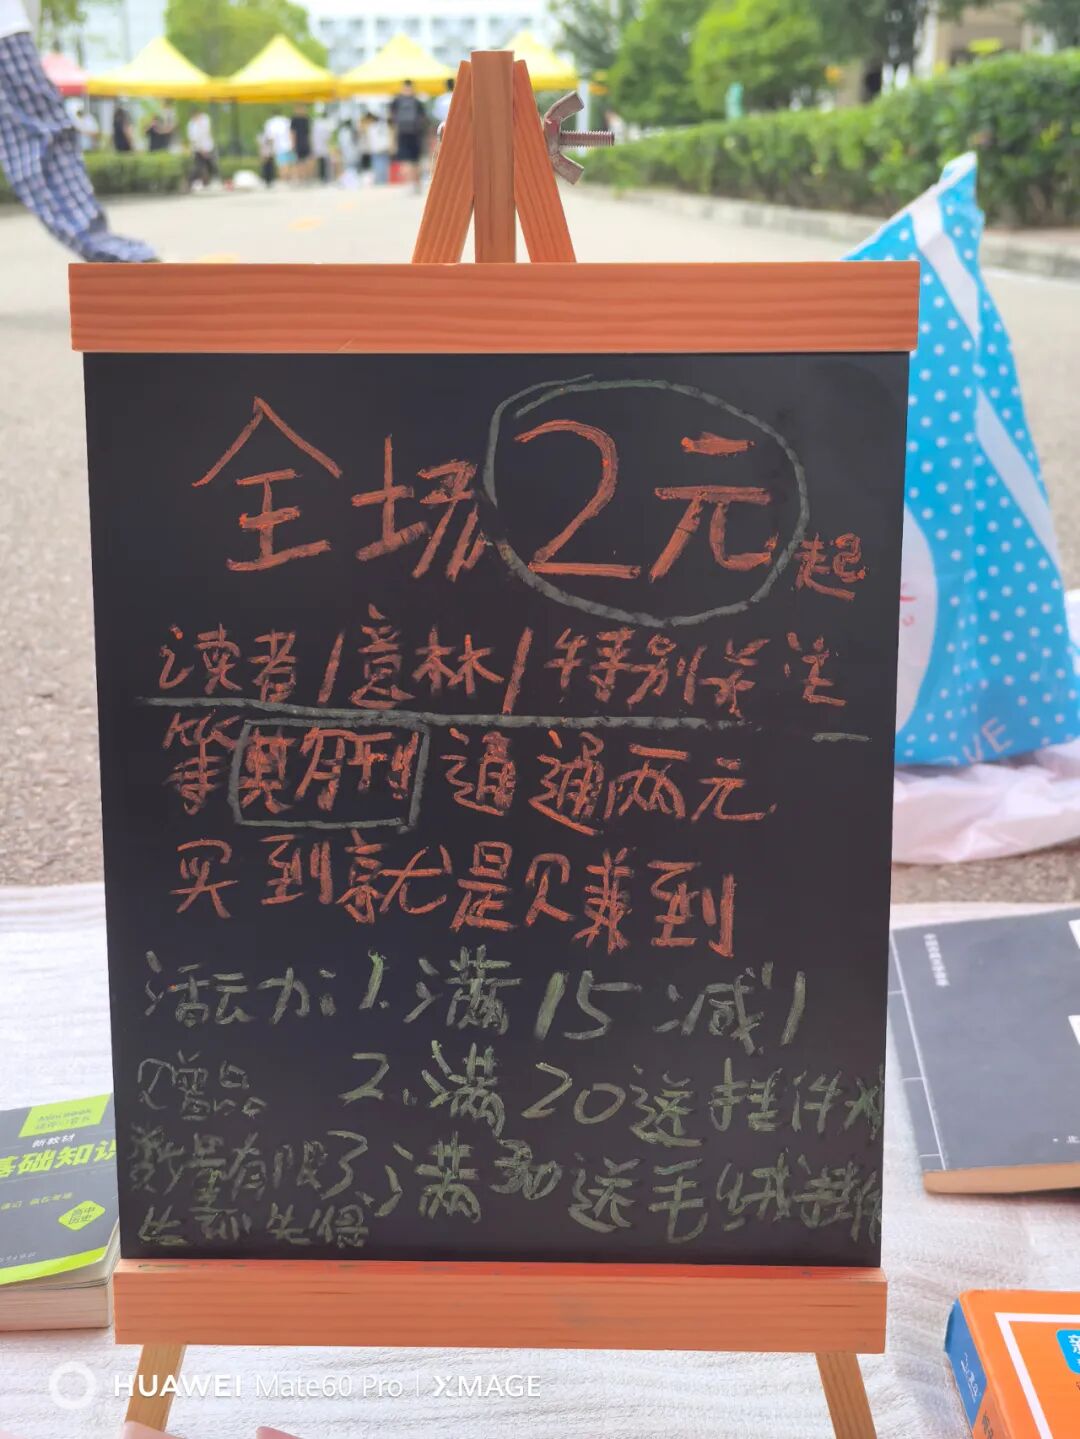 全场2元起
读者/意林/特别关注
等期刊 通通两元
买到就是赚到
活动 1.满15减1
赠品 2.满20送挂件
数量有限 3.满30送毛绒挂件
先到先得
新教材
基础知识
高中
历史
HUAWEI Mate60 Pro | XMAGE